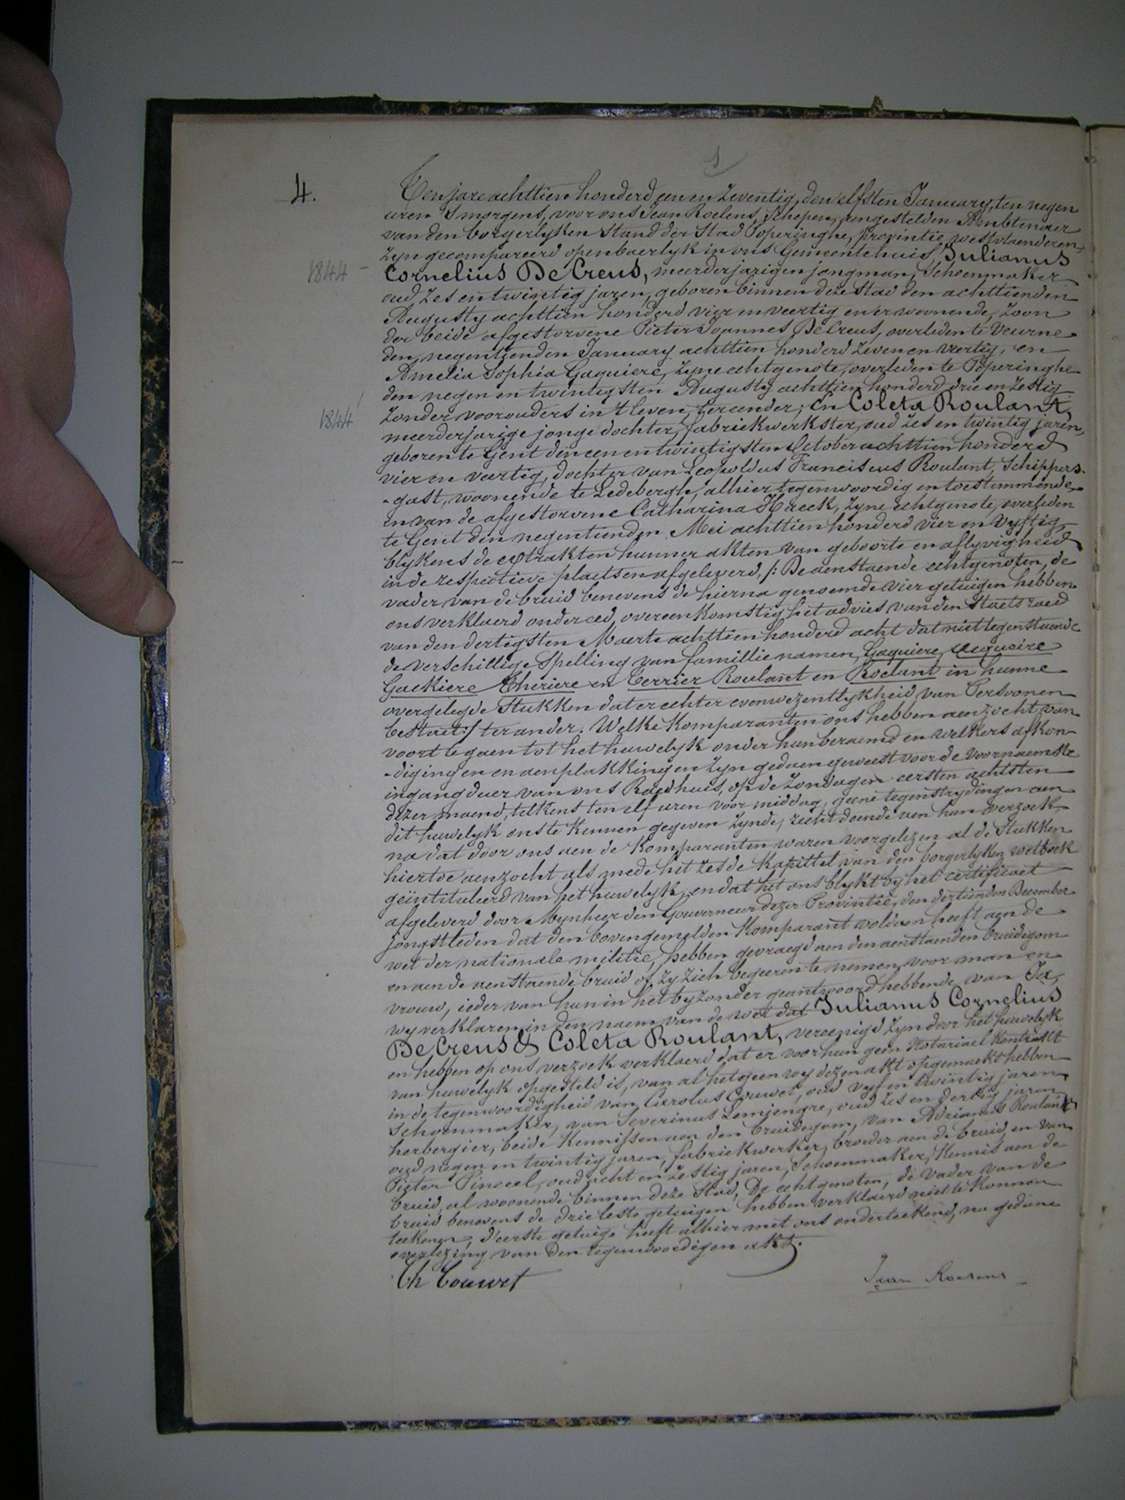 4.
Ten jare achttien honderd een en zeventig, den elfsten January, ten negen
uren 's morgens, voor ons Jean Roelens, Schepen, aengestelden Ambtenaer
van den borgerlyken Stand der Stad Poperinghe, Provintie westvlaenderen,
zyn gecompareerd openbaerlyk in ons Gemeentehuis, Julianus
1844 -
Cornelius De Creus, meerderjarigen jongman, Schoenmaker
oud zes en twintig jaren, geboren binnen deze Stad den achttienden
Augusty achttien honderd vier en veertig en er woonende, zoon
der beide afgestorvene Pieter Joannes De Creus, overleden te Veurne
den negentienden January achttien honderd zeven en viertig, en
Amelia Sophia Gaquiere, zyne echtgenote, overleden te Poperinghe
den negen en twintigsten Augusty achttien honderd drie en zestig
1844
zonder voorouders in 't leven, ter eender; En Coleta Roulant,
meerderjarige jonge dochter, fabriekwerkster, oud zes en twintig jaren,
geboren te Gent den een en twintigsten October achttien honderd
vier en veertig, dochter van Leopoldus Franciscus Roulant, Schippers-
-gast, woonende te Ledebergh, alhier tegenwoordig en toestemmende,
en van de afgestorvene Catharina Haeck, zyne echtgenote, overleden
te Gent den negentienden Mei achttien honderd vier en vyftig,
blykens de extrakten hunner akten van geboorte en aflyvigheid
in de respectieve plaetsen afgeleverd, De aenstaende echtgenoten, de
vader van de bruid benevens de hierna genoemde vier getuigen hebben
ons verklaerd onder eed, overeenkomstig het advies van den Staetsraed
van den dertigsten Maerte achttien honderd acht dat niettegenstaende
de verschillige Spelling van familie namen, Gaquiere,
Gackiere Theriere en Terrier Roulant en Roelant in hunne
overgelegde Stukken dat er echter evenwezentlykheid van Persoonen
bestaet ter ander. Welke Komparanten ons hebben aenzocht van
voort te gaen tot het huwelyk onder hun beraemd en welkers afkon-
-digingen en aenplakkingen zyn gedaen geweest voor de voornaemste
ingang duer van ons Raedhuis, op de zondagen eersten achtsten
dezer maend, telkens ten elf uren voor middag, geene tegenstrydingen aen
dit huwelyk ons te kennen gegeven zynde, recht doende aen hun verzoek
na dat door ons aen de Komparanten waren voorgelezen al de Stukken
hiertoe aenzocht als mede het zesde Kapittel van den borgerlyken wetboek
geïntituleerd van het huwelyk, en dat het ons blykt by het certificaet
afgeleverd door Mynheer den Gouverneur dezer Provintie, den dertienden December
jongstleden dat den bovengemelden Komparant voldaen heeft aen de
wet der nationale militie, hebben gevraegd aen den aenstaenden bruidegom
en aen de aenstaende bruid of zy zich begeeren te nemen voor man en
vrouw, ieder van hun in het byzonder geantwoord hebbende van Ja,
wy verklaren in den naem van de wet dat Julianus Cornelius
De Creus & Coleta Roulant, vereenigd zyn door het huwelyk
en hebben op ons verzoek verklaerd dat er voor hun geen Notariael Kontrakt
van huwelyk opgesteld is, van al hetgeen wy dezen akt opgemaekt hebben
in de tegenwoordigheid van Carolus Couwet, oud vyf en twintig jaren,
Schoenmaker, van Severinus oud zes en dertig jaren,
herbergier, beide Kennissen aen den bruidegom, van Adrianus Roulant
oud negen en twintig jaren, fabriekwerker, broeder aen de bruid en van
Pieter Pinocel, oud acht en zestig jaren, Schoenmaker, Kennis aen de
bruid, al woonende binnen deze Stad, De echtgenoten, de vader van de
bruid benevens de drie leste getuigen hebben verklaerd niet te konnen
teekenen, d'eerste getuige heeft alhier met ons onderteekend, na gedane
overlezing van den tegenwoordigen akt.
Ch Couwet
Jean Roelens